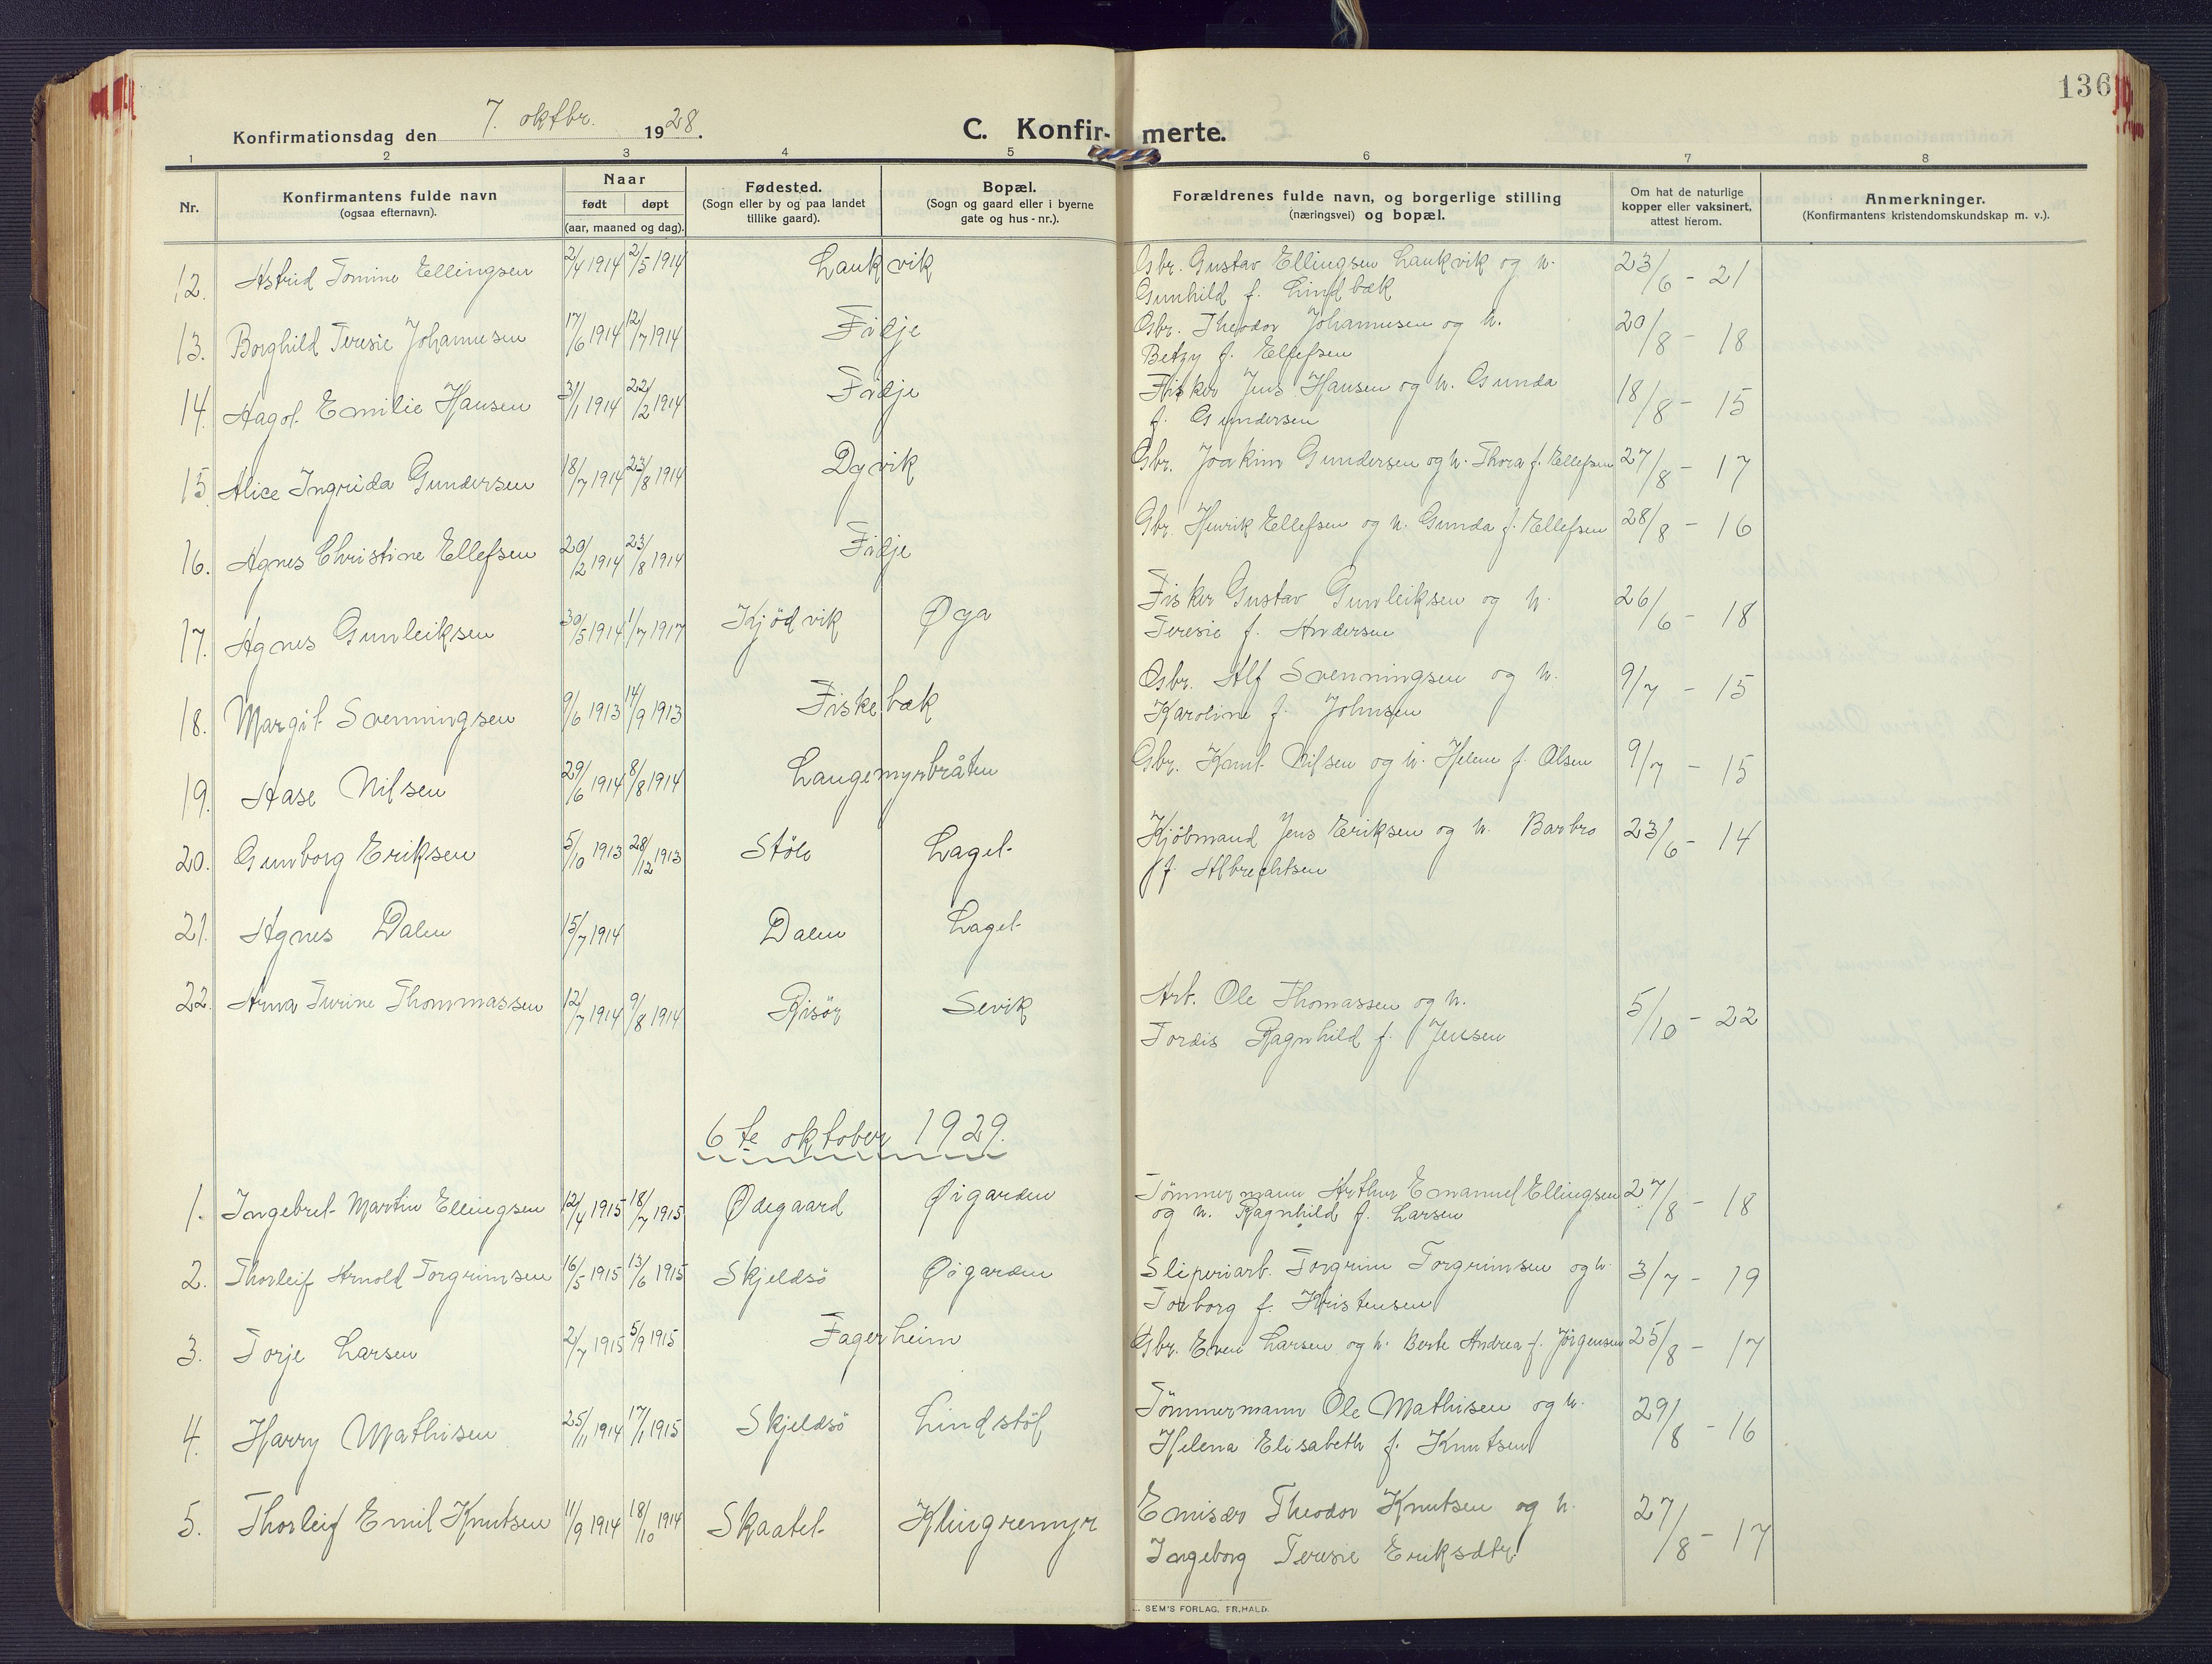 136
Konfirmationsdag den 7. oktbr. 1928. C. Konfir- merte.
1 2 3 4 5 6 7 8
Nr. Konfirmantens fulde navn (ogsaa efternavn). Naar født døpt (aar, maaned og dag). Fødested. (Sogn eller by og paa landet tillike gaard). Bopæl. (Sogn og gaard eller i byerne gate og hus-nr.). Forældrenes fulde navn, og borgerlige stilling (næringsvei) og bopæl. Om hat de naturlige kopper eller vaksinert, attest herom. Anmerkninger. (Konfirmantens kristendomskundskap m. v.).
12. Astrid Tomine Ellingsen 2/4 1914 2/5 1914 Laukvik Gbr. Gustav Ellingsen Laukvik og h. 23/6 - 21
Gunhild f. Lindbæk
13. Borghild Teresie Johannesen 17/6 1914 12/7 1914 Fidje Gbr. Theodor Johannesen og h. 20/8 - 18
Betzy f. Ellefsen
14. Aagot Emilie Hansen 31/1 1914 22/2 1914 Fidje Fisker Jens Hansen og h. Gunda 18/8 - 15
f. Gundersen
15 Alice Ingrida Gundersen 18/7 1914 23/8 1914 Dyvik Gbr. Joakim Gundersen og h. Thora f. Ellefsen 27/8 - 17
16. Agnes Christine Ellefsen 20/2 1914 23/8 1914 Fidje Gbr. Henrik Ellefsen og h. Gunda f. Ellefsen 28/8 - 16
17. Agnes Gunleiksen 30/5 1914 1/7 1917 Kjödvik Øya Fisker Gustav Gunleiksen og h. 26/6 - 18
Teresie f. Andersen
18. Margit Svenningsen 9/6 1913 14/9 1913 Fiskebæk Gbr. Alf Svenningsen og h. 9/7 - 15
Karoline f. Johnsen
19. Aase Nilsen 29/6 1914 8/8 1914 Langemyrbråten Gbr. Knut Nilsen og h. Helene f. Olsen 9/7 - 15
20. Gunborg Eriksen 5/10 1913 28/12 1913 Støle Laget Kjöbmand Jens Eriksen og h. Barbro 23/6 - 14
f. Albrechtsen
21. Agnes Dalen 15/7 1914 Dalen Laget
22. Anna Turine Thommassen 12/7 1914 9/8 1914 Risør Sevik Arb. Ole Thomassen og h. 5/10 - 22
Tordis Ragnhild f. Jensen
6te oktober 1929.
1. Ingebret Martin Ellingsen 12/4 1915 18/7 1915 Ødegaard Øigarden Tömmermann Arthur Emanuel Ellingsen 27/8 - 18
og h. Ragnhild f. Larsen
2. Thorleif Arnold Torgrimsen 16/5 1915 13/6 1915 Skjeldsö Øigarden Sliperiarb. Torgrim Torgrimsen og h. 3/7 - 19
Torborg f. Kristensen
3. Torje Larsen 2/7 1915 5/9 1915 Fagerheim Gbr. Even Larsen og h. Berte Andrea f. Jörgensen 25/8 - 17
4. Harry Mathisen 25/11 1914 17/1 1915 Skjeldsö Lindstøl Tömmermann Ole Mathisen og h. 29/8 - 16
Helena Elisabeth f. Knutsen
5. Thorleif Emil Knutsen 11/9 1914 18/10 1914 Skaatet Klingremyr Emisær Theodor Knutsen og h. 27/8 - 17
Ingeborg Teresie Eriksdtr.
SEM'S FORLAG, FR.HALD.